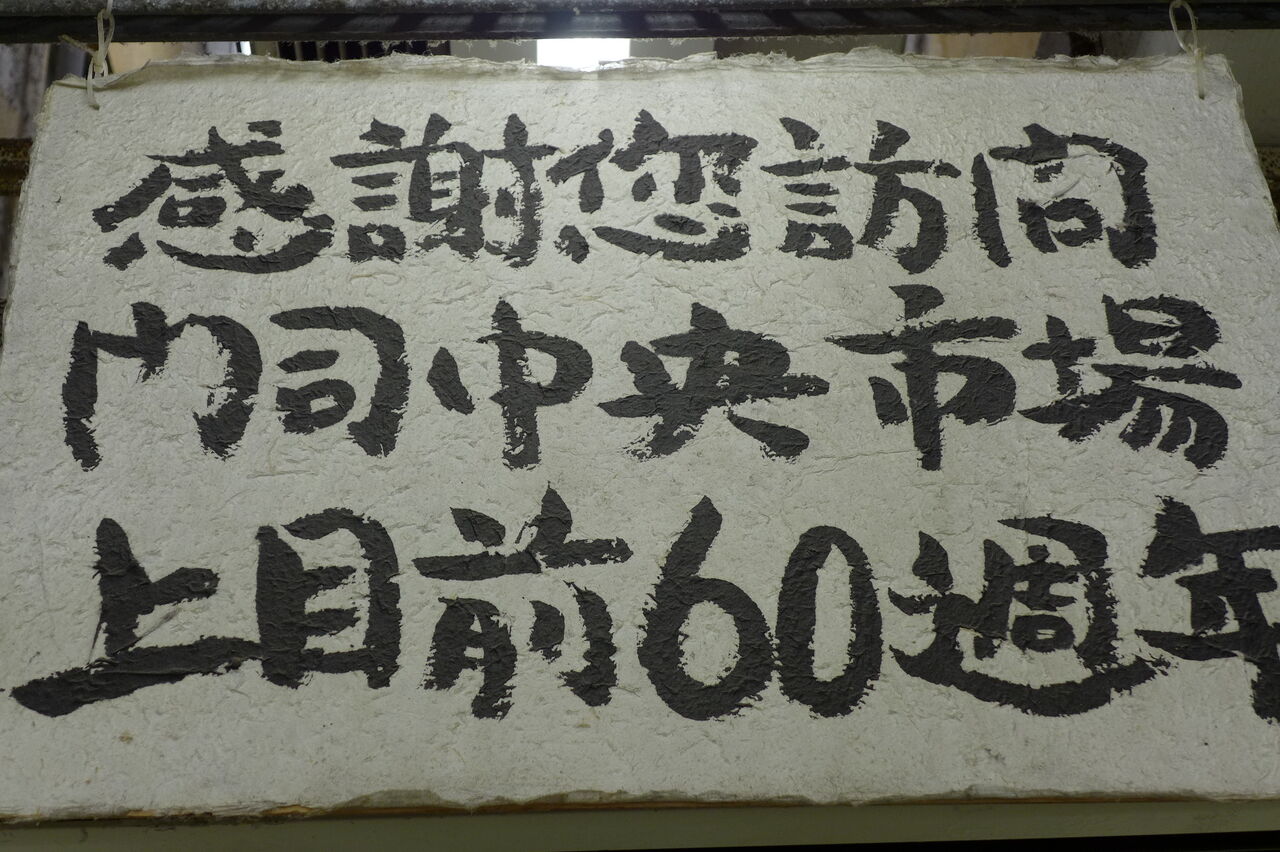 感謝您訪问
门司中央市場
上目前60週年